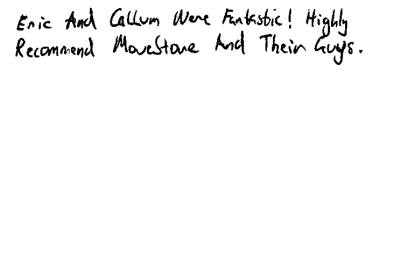 Eric And Callum Were Fantastic! Highly
Recommend MoveStore And Their Guys.